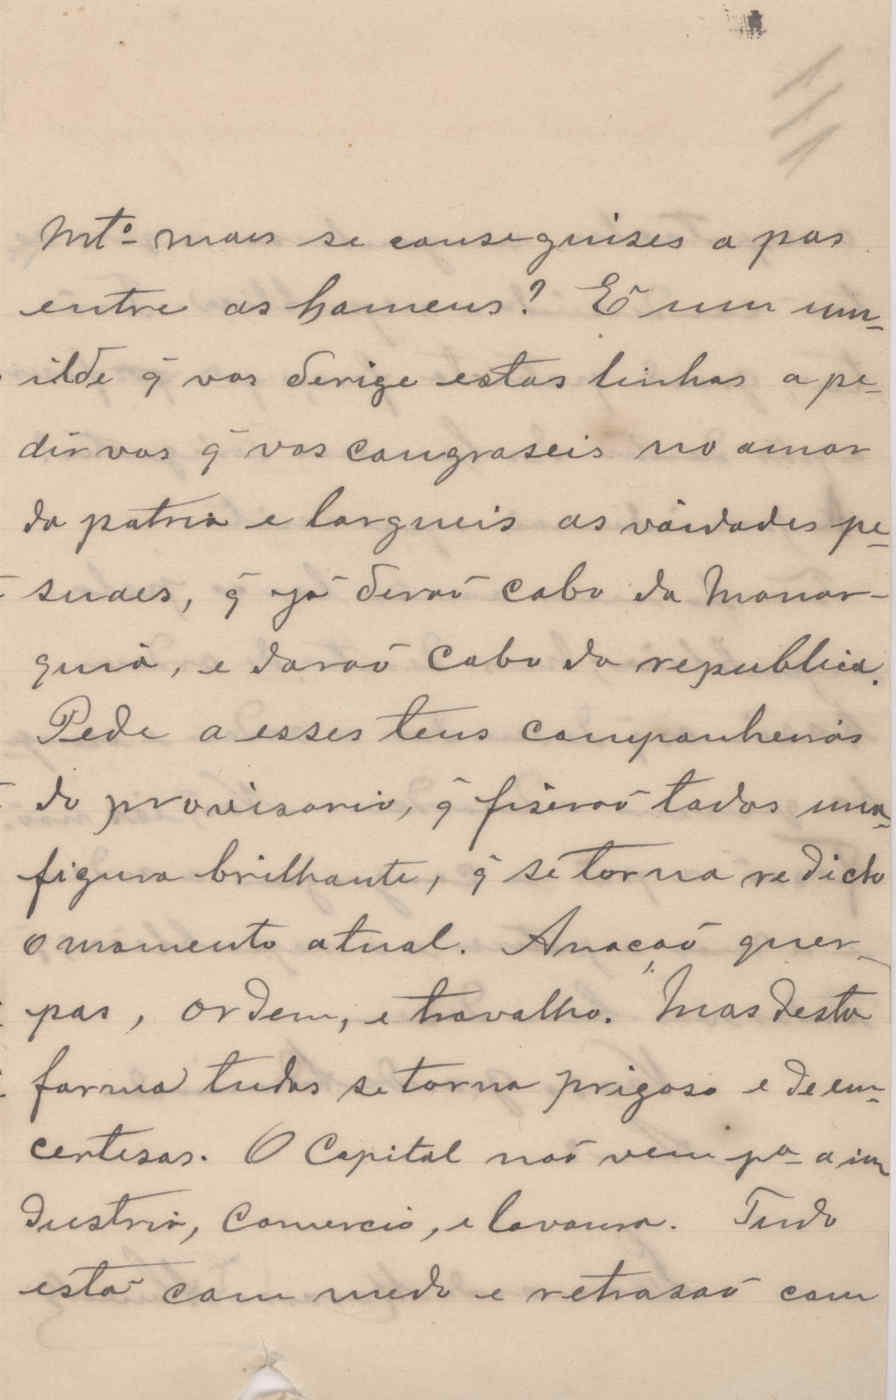 Mto mais se conseguises a pas
entre os homens? É um um-
ilde q̃ vos derige estas linhas a pe-
dir vos q̃ vos congraseis no amor
da patria e largueis as vaidades pe-
suaes, q̃ ja derão cabo da Monar-
quia, e darão cabo da republica.
Pede a esses teus companheiros
do provisorio, q̃ fiserão todos uma
figura brilhante, q̃ se torna redicło
o momento atual. Anação quer
pas, ordem, e travalho. Mas desta
forma tudos se torna prigoso e de em-
certesas. O Capital não vem pa a in
dustria, Comercio, e lavoura. Tudo
está com medo e retrasão com